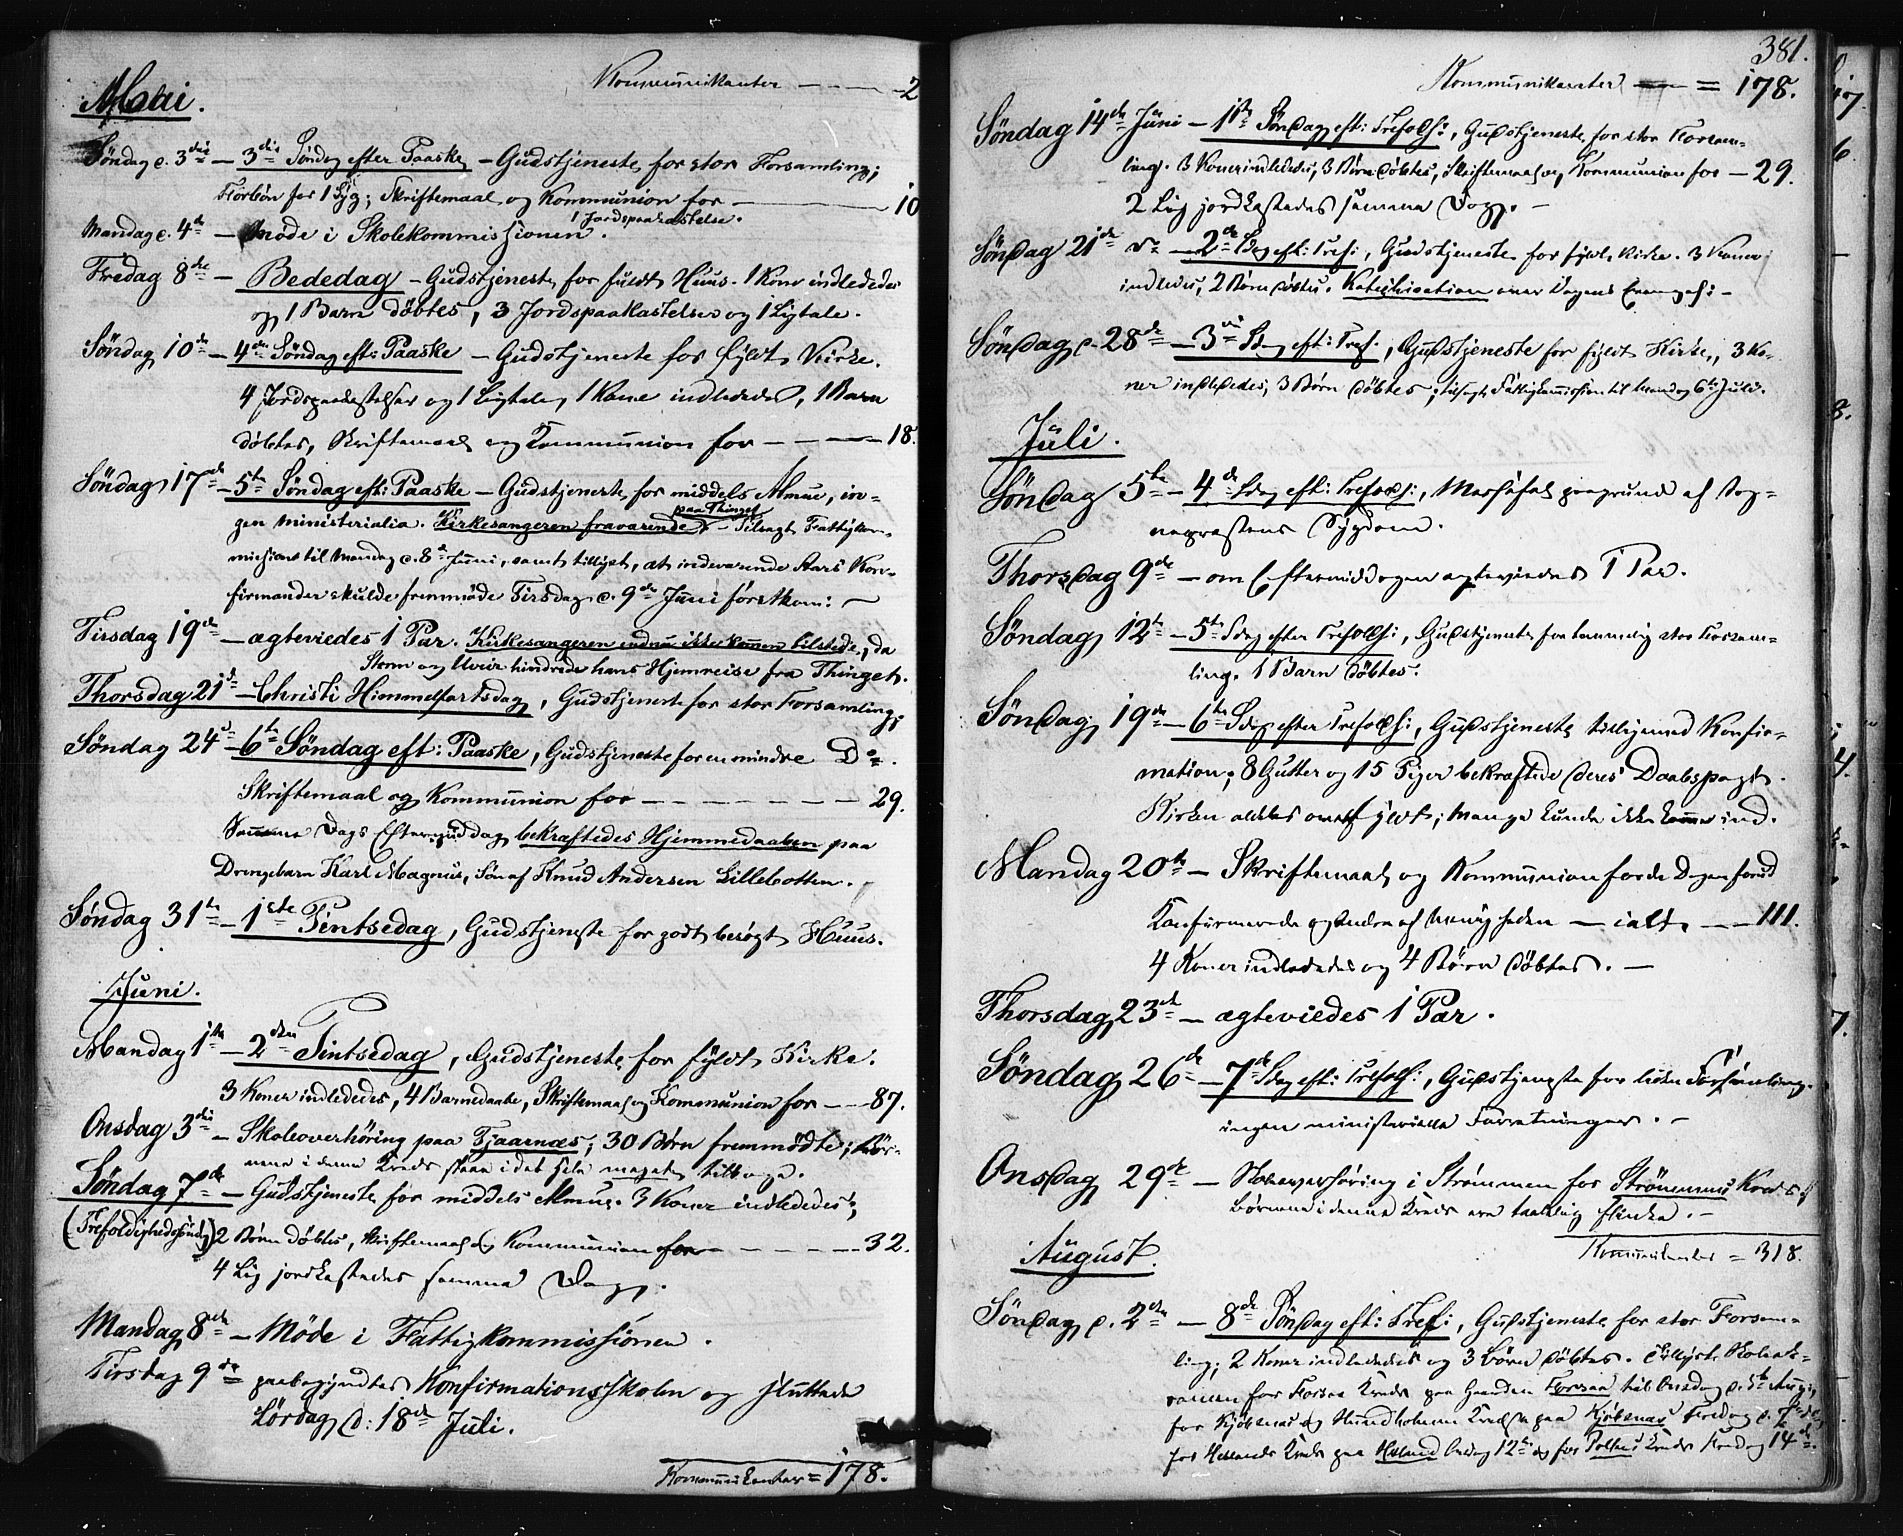 Kommunikanter - - - - 2
Mai.
Søndag d. 3die - 3die Søndag efter Paaske - Gudstjeneste for stor Forsamling;
Forbøn for 1 Syg; Skriftemaal og Kommunion for - 10
1 Jordspaakastelse.
Mandag d. 4de - Møde i Skolekommissionen.
Fredag 8de - Bededag - Gudstjeneste for fuldt Huus. 1 Kone indlededes
og 1 Barn døbtes, 3 Jordspaakastelser og 1 Ligtale.
Søndag 10de - 4de Søndag eft: Paaske - Gudstjeneste for fyldt Kirke.
4 Jordspaakastelser og 1 Ligtale, 1 Kone indlededes, 1 Barn
døbtes, Skriftemaal og Kommunion for - - - - 18.
Søndag 17de - 5te Søndag eft: Paaske - Gudstjeneste for middels Almue, in-
paa Thinget
gen ministerialia. Kirkesangeren fraværende - Tilsagt Fattigkom-
mission til Mandag d. 8de Juni, samt tillyst, at indeværende Aars Kon-
firmander skulde fremmøde Tirsdag d. 9de Juni førstkom: -
Tirsdag 19de - ægteviedes 1 Par. Kirkesangeren endnu ikke kommen tilstede, da
Storm og Uveir hindrede hans Hjemreise fra Thinget.
Thorsdag 21de - Christi Himmelfartsdag, Gudstjeneste for stor Forsamling;
Søndag 24de - 6te Søndag eft: Paaske, Gudstjeneste for en mindre Do.
Skriftemaal og Kommunion for - - - - - - - 29.
Samme Dags Eftermiddag bekræftedes Hjemmedaaben paa
Drengebarn Karl Magnus, Søn af Knud Andersen Lillebotten.
Søndag 31te - 1ste Pintsedag, Gudstjeneste for godt besøgt Huus.
Juni.
Mandag 1ste - 2den Pintsedag, Gudstjeneste for fyldt Kirke.
3 Koner indlededes, 4 Barnedaabe, Skriftemaal og Kommunion for - - - 87.
Onsdag 3die - Skoleoverhøring paa Tjaarnæs; 30 Børn fremmødte; Bør-
nene i denne Kreds staaer i det hele meget tilbage.
Søndag 7de - Gudstjeneste for middels Almue. 3 Koner indlededes;
(Trefoldighedssøndag) 2 Børn døbtes, Skriftemaal og Kommunion for - - - - - - 32.
4 Lig jordkastedes samme Dag.
Mandag 8de - Møde i Fattigkommissionen.
Tirsdag 9de paabegyndtes Konfirmationsskolen og sluttede
Lørdag d: 18de Juli.
Kommunikanter = 178.
381.
Kommunikanter = 178.
Søndag 14de Juni - 1ste Søndag eft: Trefolh:, Gudstjeneste for stor Forsam-
ling. 3 Koner indlededes, 3 Børn døbtes, Skriftemaal og Kommunion for - 29.
2 Lig jordkastedes samme Dag. -
Søndag 21de do - 2de Sdag eft: Tref:, Gudstjeneste for fyldt Kirke. 3 Koner
indledes, 2 Børn døbtes. Katechisation over Dagens Evangel: -
Søndag d. 28de - 3die Sdag eft: Tref:, Gudstjeneste for fyldt Kirke, 3 Ko-
ner indlededes, 3 Børn døbtes; tilsagt Fattigkommission til Mandag 6te Juli.
Juli.
Søndag 5te - 4de Sdag eft: Trefoldh:, Messefald paagrund af Sog-
nepræstens Sygdom.
Thorsdag 9de - om Eftermiddagen ægteviedes 1 Par.
Søndag 12te - 5te Sdag efter Trefoldh:, Gudstjeneste for temmelig stor Forsam-
ling. 1 Barn døbtes.
Søndag 19de - 6te Sdag efter Trefoldh:, Gudstjeneste tilligemed Konfir-
mation; 8 Gutter og 15 Piger bekræftede deres Daabspagt.
Kirken aldeles overfyldt; mange kunde ikke komme ind.
Mandag 20de - Skriftemaal og Kommunion for de Dagen forud
Konfirmerede og Andre af Menigheden - ialt - - 111.
4 Koner indlededes og 4 Børn døbtes. -
Thorsdag 23de - ægteviedes 1 Par.
Søndag 26de - 7de Sdag eft: Trefoldh:, Gudstjeneste for liden Forsamling.
ingen ministerielle Forretninger. -
Onsdag 29de - Skoleoverhøring i Strømmen for Strømmens Kreds;
Børnene i denne Kreds ere taalelig flinke. -
Kommunikanter = 318.
August.
Søndag d. 2den - 8de Søndag eft: Tref:, Gudstjeneste for stor Forsam-
ling; 2 Koner indlededes og 3 Børn døbtes. Tillyst Skoleex-
amen for Forsaa Kreds paa Gaarden Forsaa til Onsdag d. 5te Aug;
for Kjøbsnæs og Hundholmen Kredse paa Kjøbsnæs Fredag d. 7de ds,
for Hellands Kreds paa Helland Onsdag 12te og for Kreds Fredag 14de.